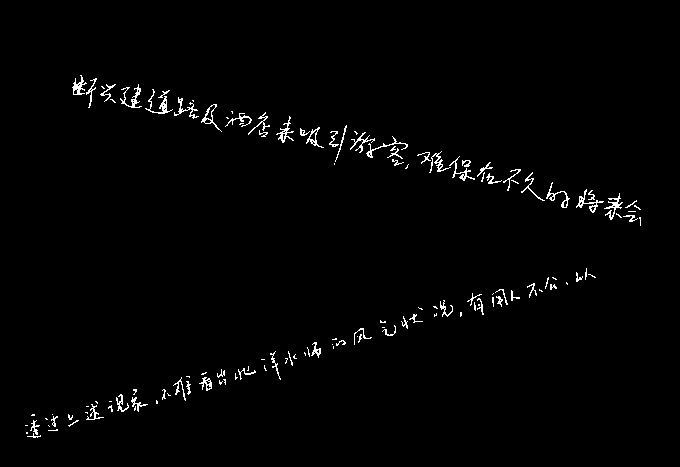 断兴建道路及酒店来吸引游客,难保在不久的将来会
透过上述现象,不难看出北洋水师的风气状况,有用人不公、以